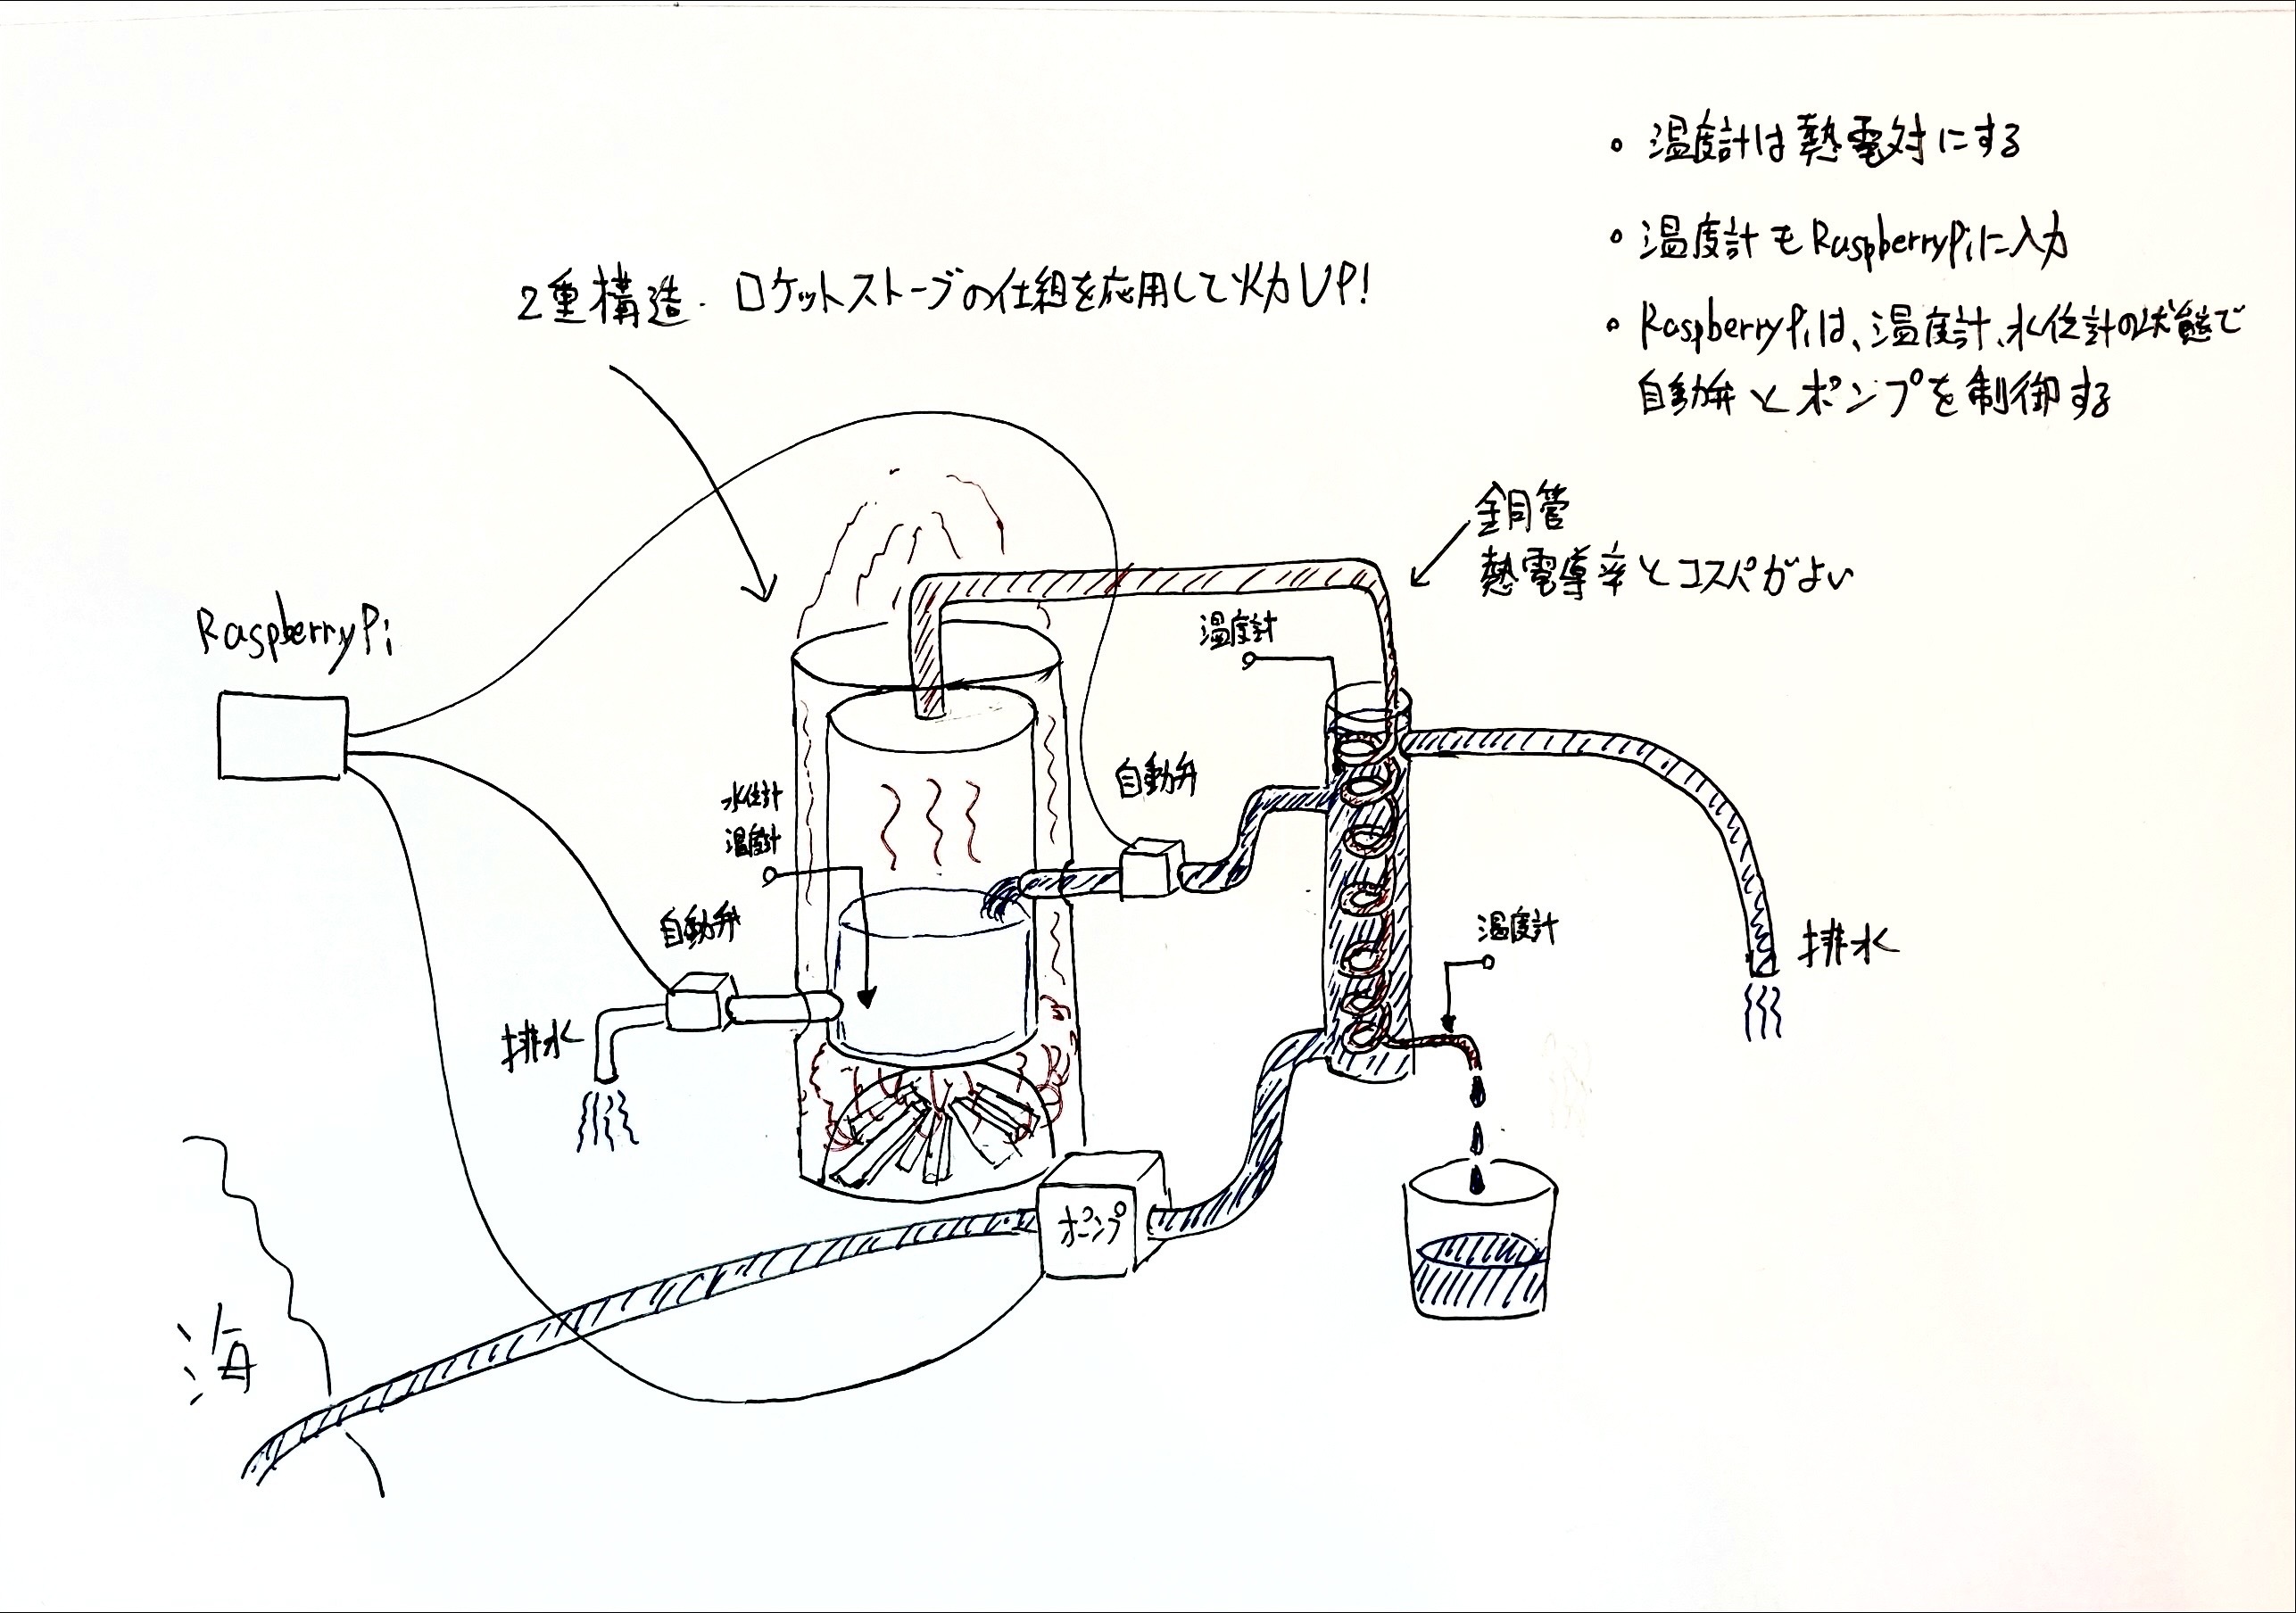 ・温度計は熱電対にする
・温度計もRaspberryPiに入力
・RaspberryPiは、温度計、水位計の状態で
自動弁とポンプを制御する
2重構造.ロケットストーブの仕組を応用して火力UP!
銅管
熱電導率とコスパがよい
温度計
RaspberryPi
自動弁
水位計
温度計
自動弁
温度計
排水
排水
ポンプ
海